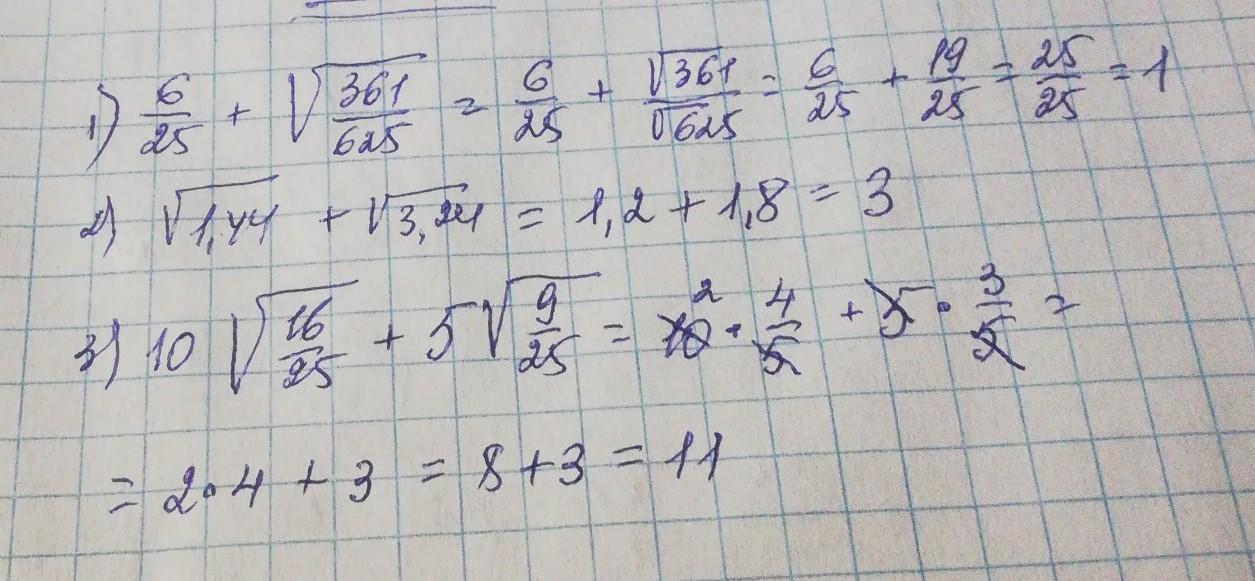 1) 6/25 + √(361/625) = 6/25 + √361/√625 = 6/25 + 19/25 = 25/25 = 1
2) √1,44 + √3,24 = 1,2 + 1,8 = 3
3) 10 √(16/25) + 5 √(9/25) = 10 2 · 4/5 + 5 · 3/5 =
= 2 · 4 + 3 = 8 + 3 = 11